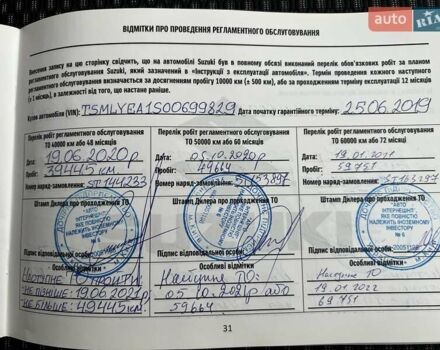 auto RIA
ВІДМІТКИ ПРО ПРОВЕДЕННЯ РЕГЛАМЕНТНОГО ОБСЛУГОВУВАННЯ
Внесення запису на цю сторінку свідчить, що на автомобілі Suzuki був в повному обсязі виконаний перелік обов'язкових робіт за планом
регламентного обслуговування Suzuki, який зазначений в «Інструкції з експлуатації автомобіля». Термін проведення кожного наступного
регламентного обслуговування визначається за досягненням пробігу 10000 км (± 500 км), або за проходженням терміну експлуатації 12 місяців
(± 1 місяць), в залежності від того, що настане раніше.
Кузов автомобіля (VIN): TSMLYEA1S00699829 Дата початку гарантійного терміну: 25.06.2019
Перелік робіт регламентного обслуговування
ТО 40000 км або 48 місяців
Дата: 19.06.2020р
Пробіг: 39445 км
Номер наряд-замовлення: ST144233
Штамп Дилера про проходження ТО
Підпис відповідальної особи:
Особливі відмітки
НАСТУПНЕ ТО ПРОЙТИ:
НЕ ПІЗНІШЕ: 19.06.2021р.
НЕ БІЛЬШЕ: 49445 км.
Перелік робіт регламентного обслуговування
ТО 50000 км або 60 місяців
Дата: 05.10.2020р
Пробіг: 49664
Номер наряд-замовлення: ST153897
Штамп Дилера про проходження ТО
Підпис відповідальної особи:
Особливі відмітки
Наступне ТО:
05.10.2021р або
59664
Перелік робіт регламентного обслуговування
ТО 60000 км або 72 місяці
Дата: 19.01.2021
Пробіг: 59751
Номер наряд-замовлення: ST163297
Штамп Дилера про проходження ТО
Підпис відповідальної особи:
Особливі відмітки
Наступне ТО
19.01.2022
69751
31